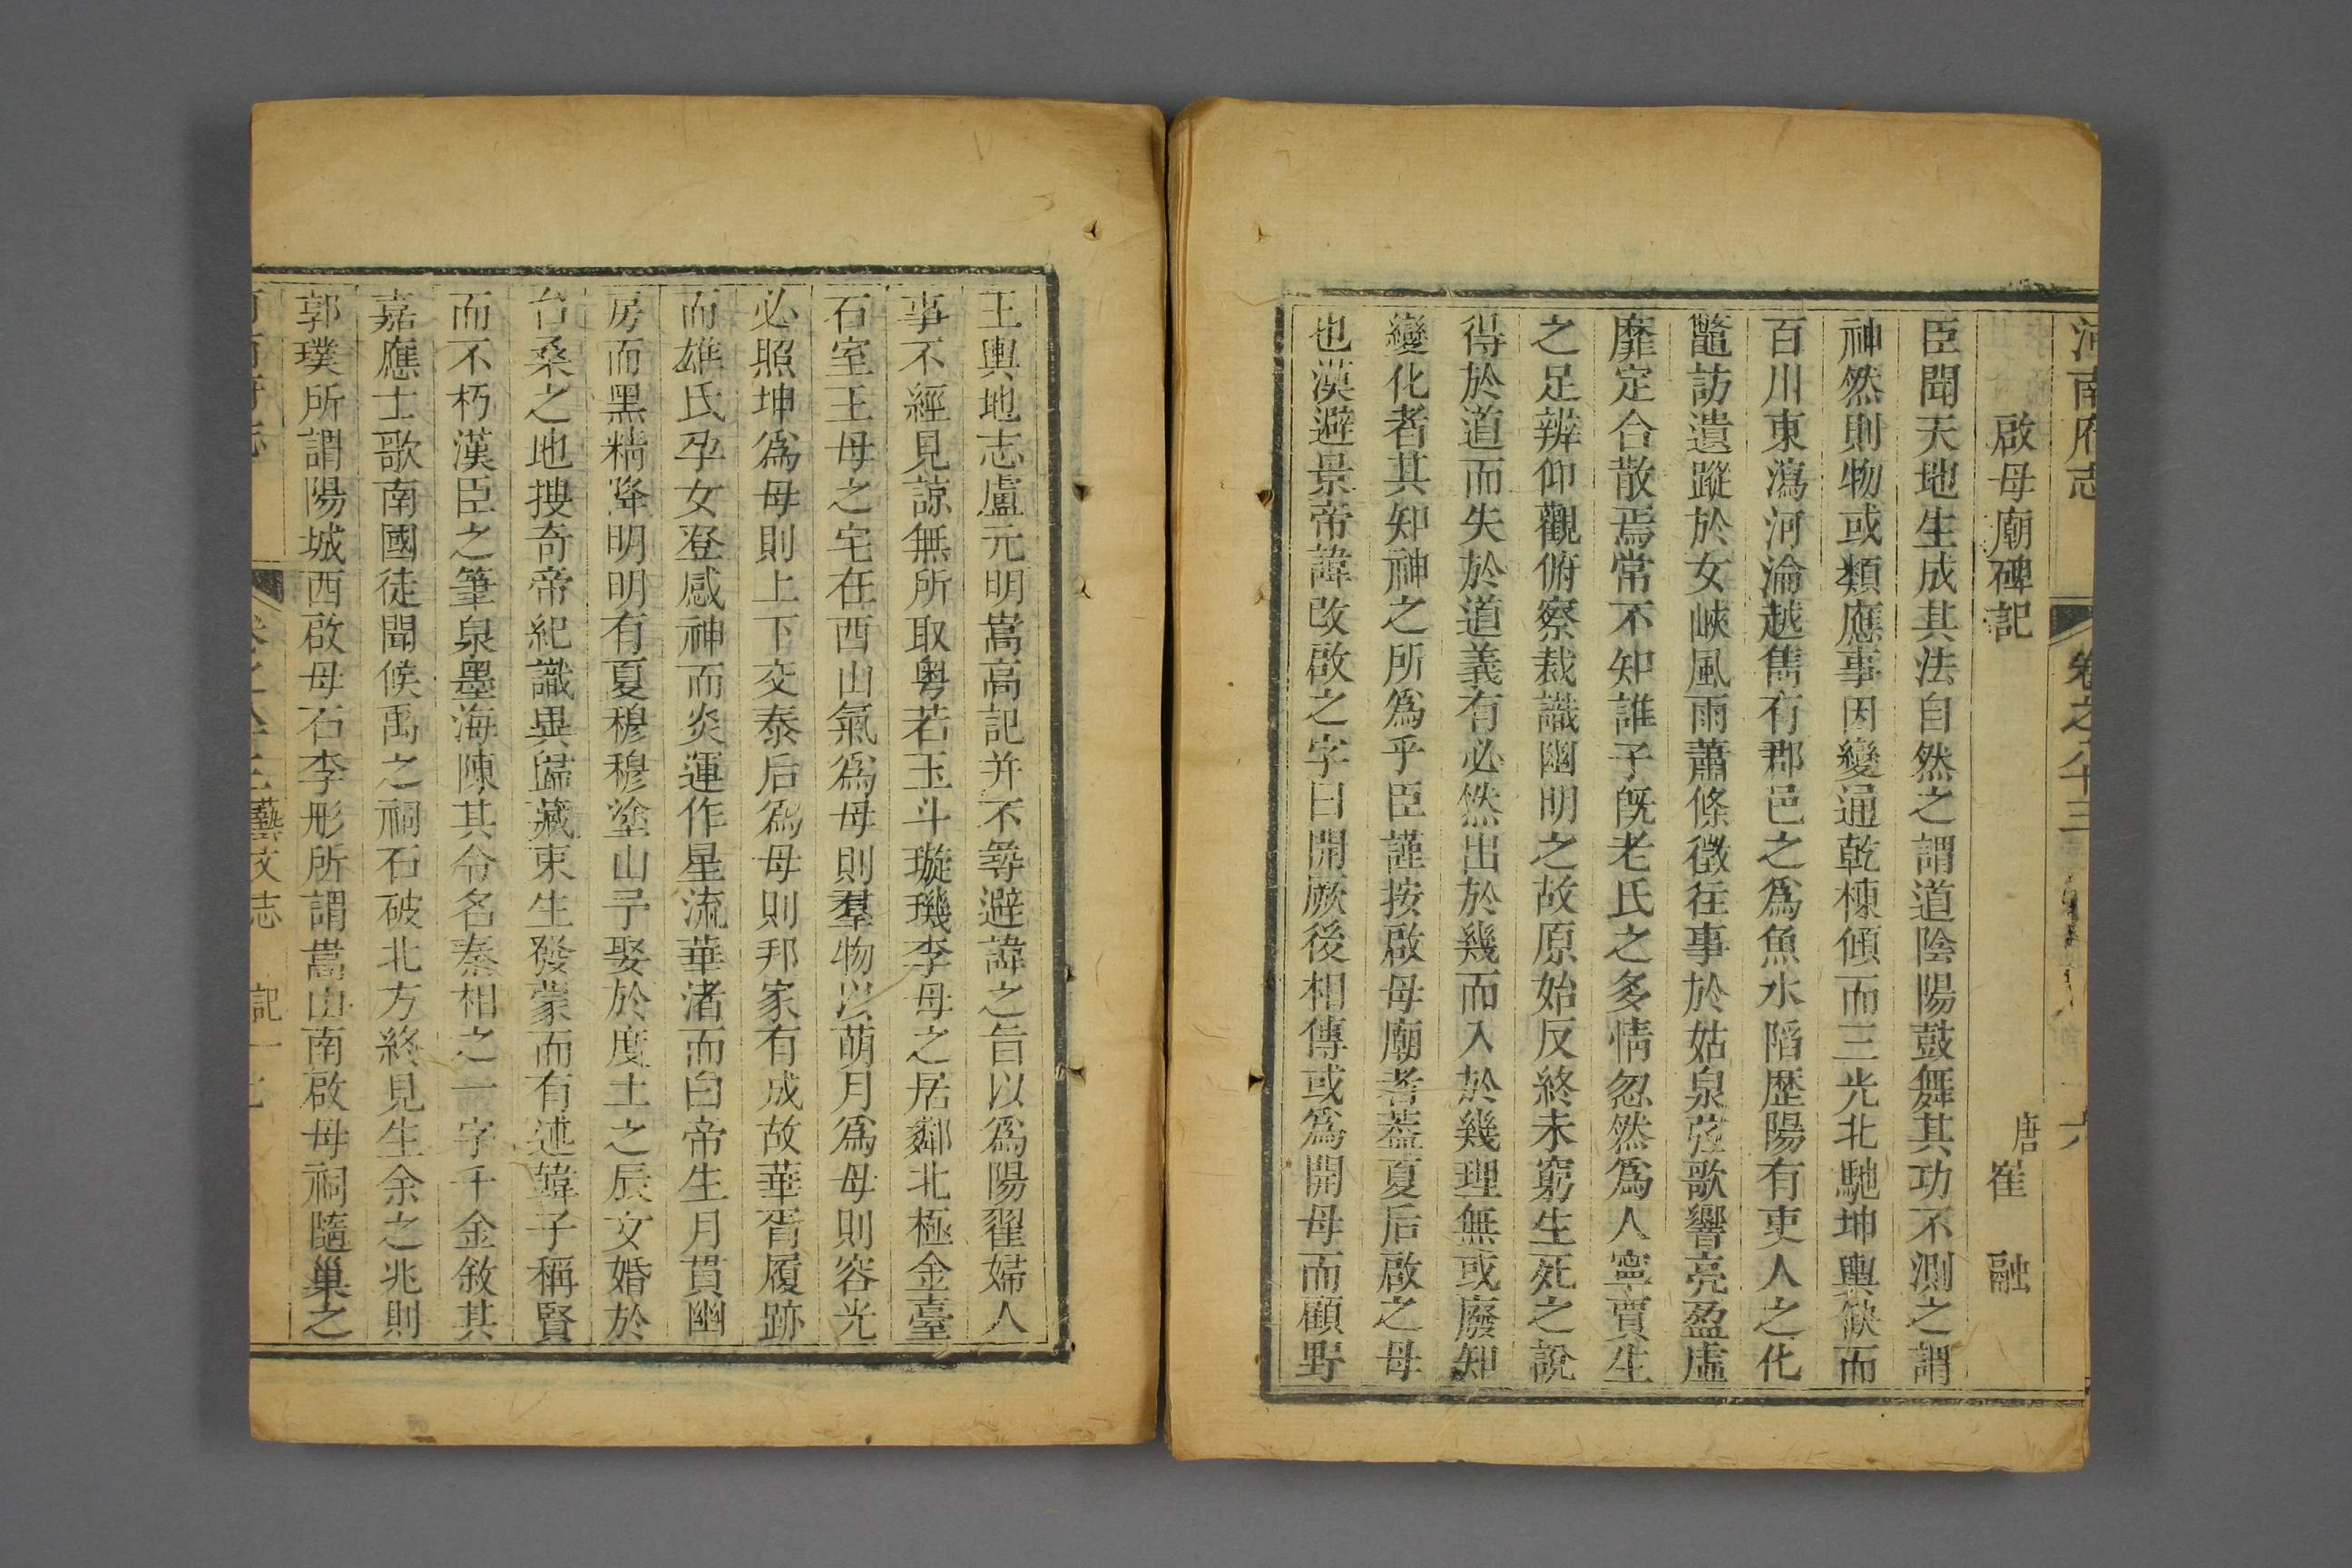 河南府志 卷之八十三 六
啟母廟碑記
唐崔融
臣聞天地生成其法自然之謂道陰陽鼓舞其功不測之謂
神然則物或類應事因變通乾棟傾而三光北馳坤輿缺而
百川東瀉河淪越雋有郡邑之爲魚水陷歷陽有吏人之化
鼈訪遺蹤於女峽風雨蕭條徵往事於姑泉弦歌響亮盈虛
靡定合散焉常不知誰子旣老氏之多情忽然爲人寧賈生
之足辨仰觀俯察裁識幽明之故原始反終未窮生死之說
得於道而失於道義有必然出於幾而入於幾理無或廢知
變化者其知神之所爲乎臣謹按啟母廟者蓋夏后啟之母
也漢避景帝諱改啟之字曰開厥後相傳或爲開母而顧野
王輿地志盧元明嵩高記并不尋避諱之旨以爲陽翟婦人
事不經見諒無所取粤若玉斗璇璣李母之居鄰北極金臺
石室王母之宅在西山氣爲母則羣物以萌月爲母則容光
必照坤爲母則上下交泰后爲母則邦家有成故華胥履跡
而雄氏孕女登感神而炎運作星流華渚而白帝生月貫幽
房而黑精降明明有夏穆穆塗山予娶於度土之辰女婚於
台桑之地搜奇帝紀識異歸藏束生發蒙而有述韓子稱賢
而不朽漢臣之筆泉墨海陳其令名秦相之一字千金敘其
嘉應士歌南國徒聞候禹之祠石破北方終見生余之兆則
郭璞所謂陽城西啟母石李彤所謂嵩山南啟母祠隨巢之
藝文志 記 十七